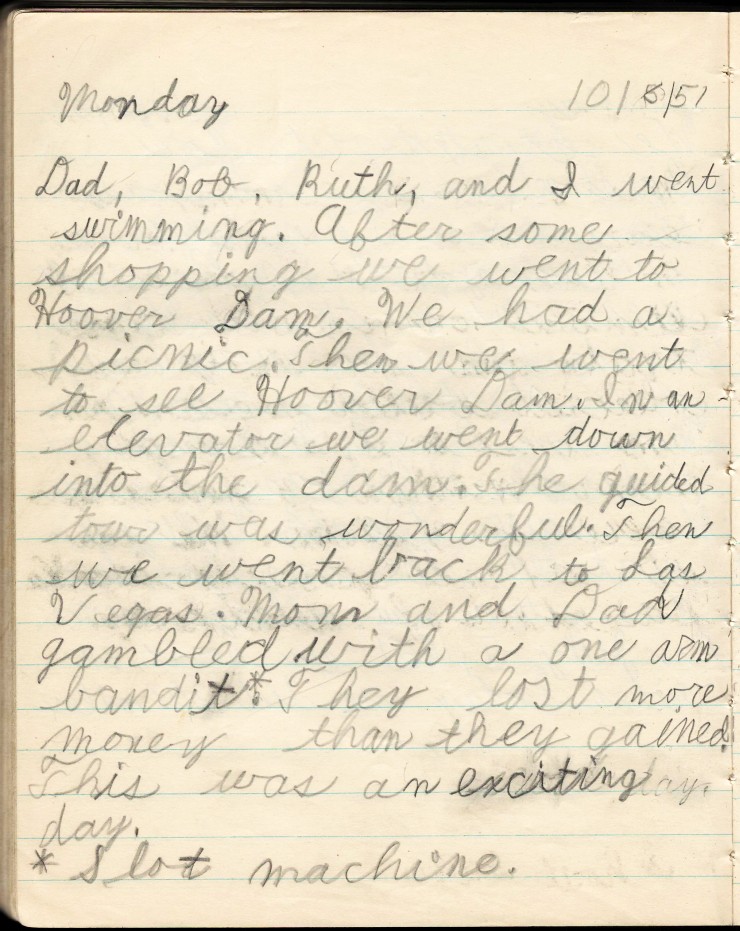 Monday 10/8/51
Dad, Bob, Ruth, and I went
swimming. After some
shopping we went to
Hoover Dam. We had a
picnic. Then we went
to see Hoover Dam. In an
elevator we went down
into the dam. The guided
tour was wonderful. Then
we went back to Las
Vegas. Mom and Dad
gambled with a one arm
bandit.* They lost more
money than they gained.
This was an exciting day.
day.
* Slot machine.